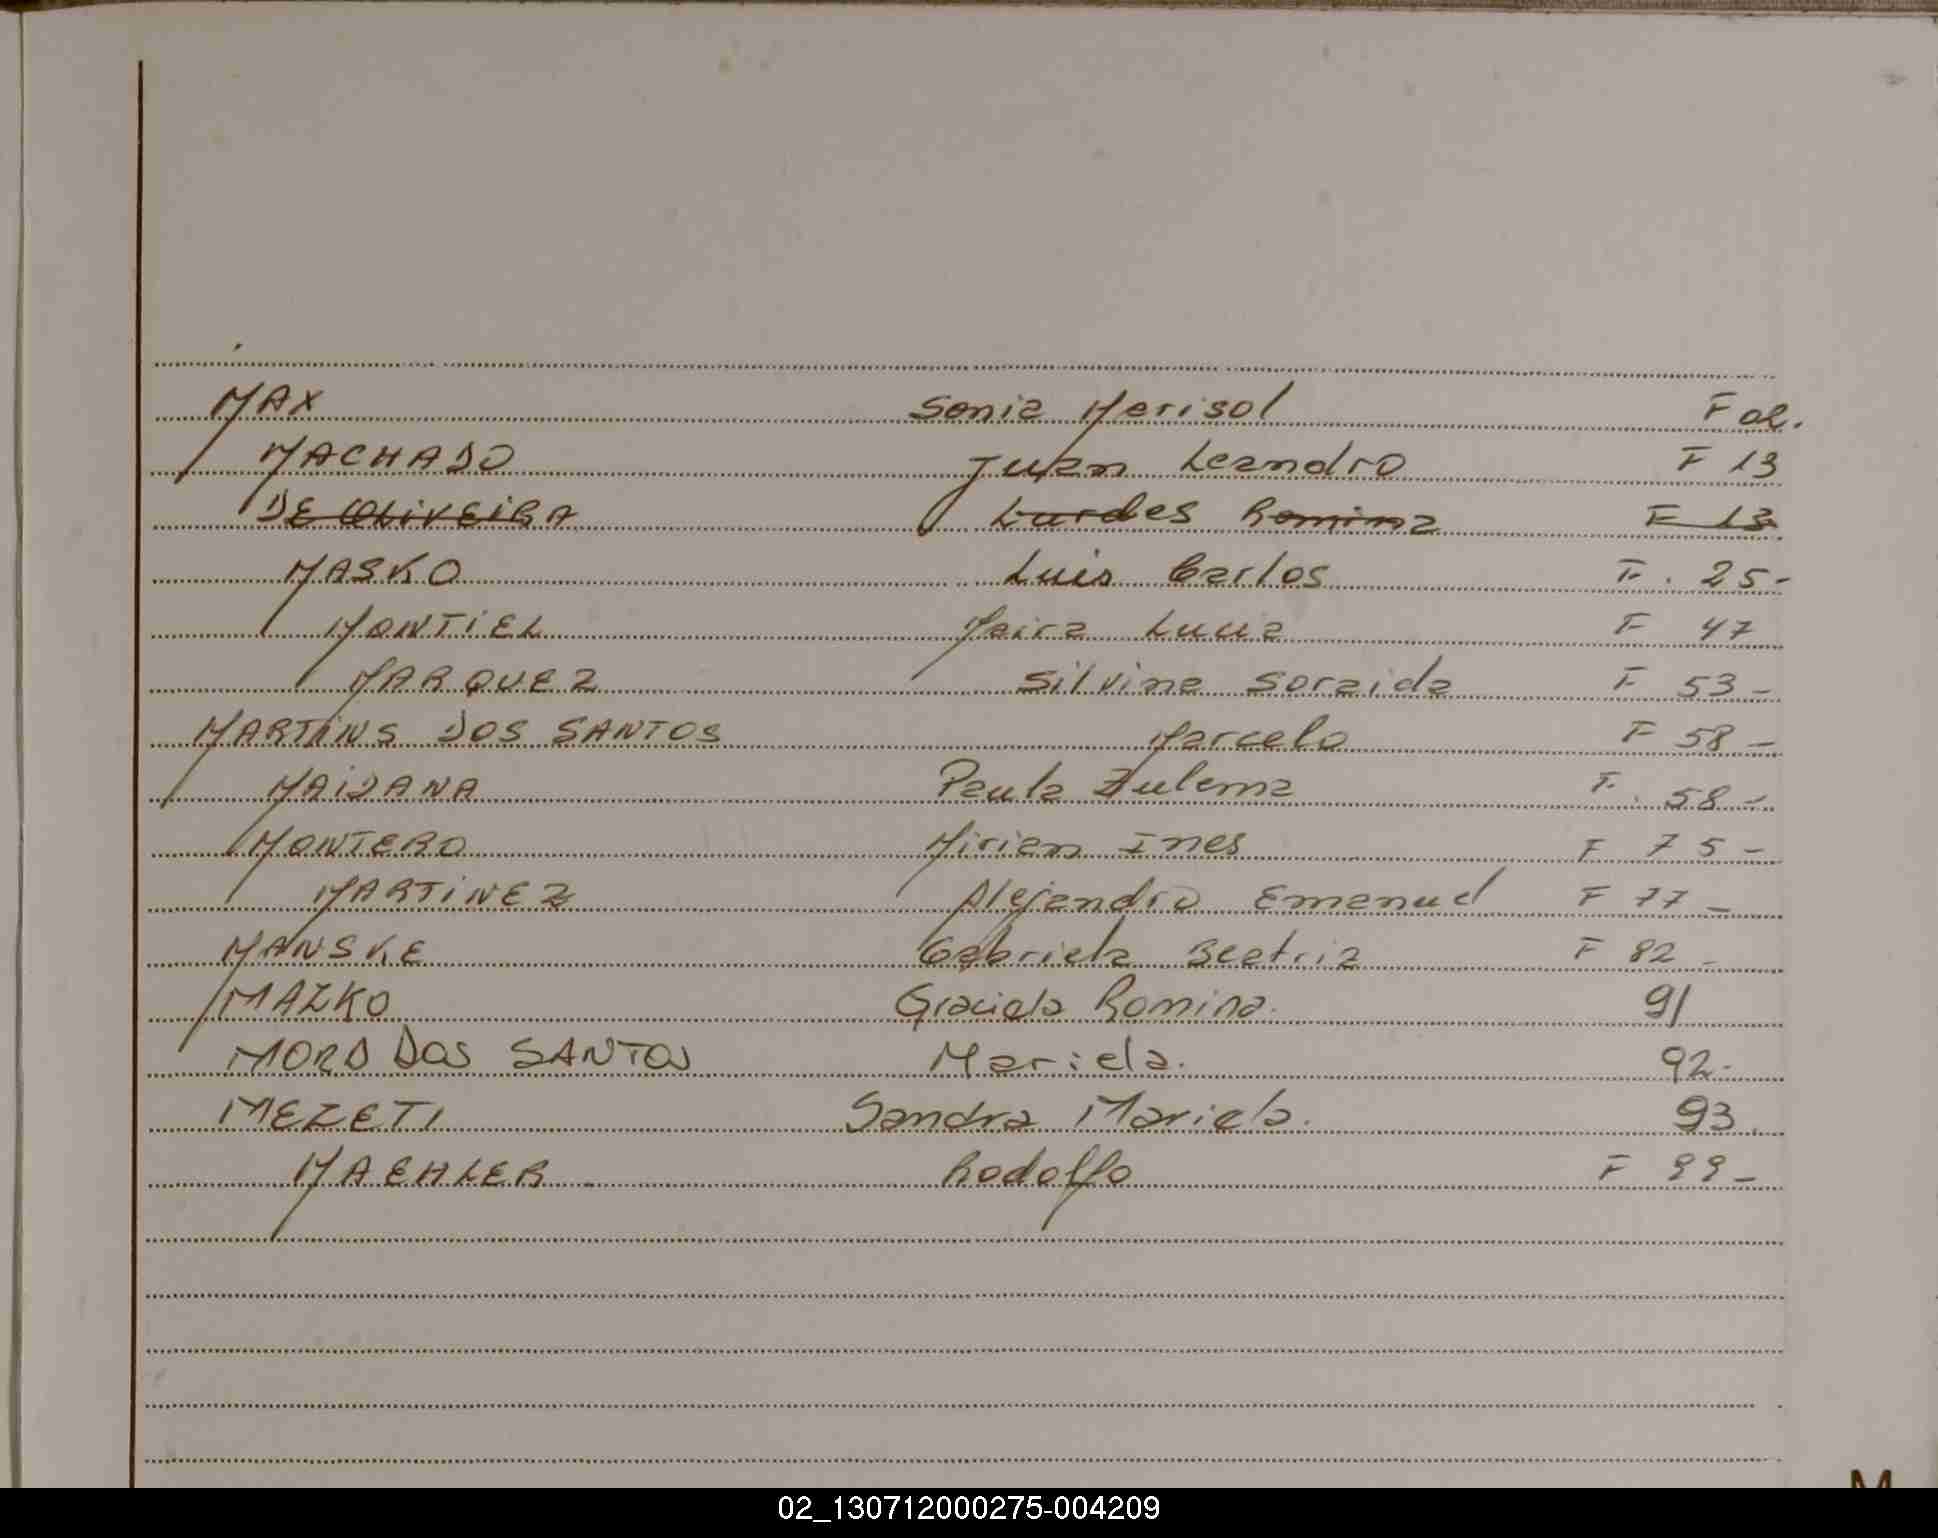 MAX Sonia Marisol F 02.
MACHADO Juan Leandro F 13
DE OLIVEIRA Lurdes Romina F 13
MASKO Luis Carlos F. 25-
MONTIEL Maira Luisa F 47
MARQUEZ Silvina Soraida F 53-
MARTINS DOS SANTOS Marcelo F 58-
MAIDANA Paula Zulema F. 58-
MONTERO Miriam Ines F 75-
MARTINEZ Alejandro Emanuel F 77-
MANSKE Gabriela Beatriz F 82-
MAZKO Graciela Romina. 91
MORO DOS SANTOS Mariela. 92-
MEZETI Sandra Mariela. 93.
MAEHLER Rodolfo F 99-
M
02_130712000275-004209